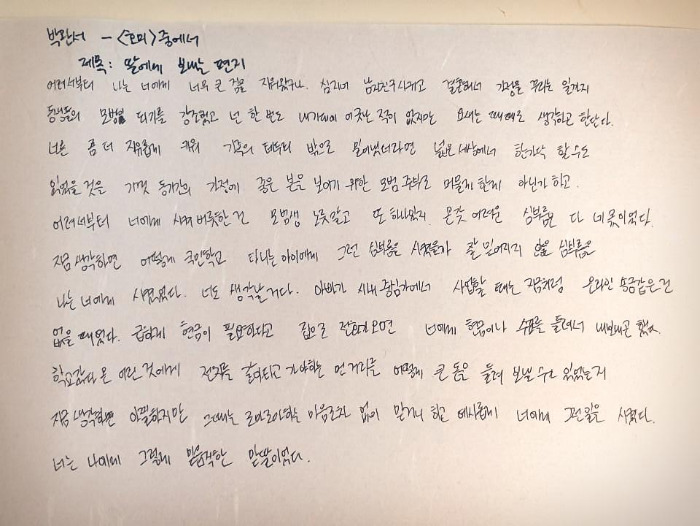 박완서 - <호미> 중에서
제목: 딸에게 보내는 편지
어려서부터 나는 너에게 너무 큰 짐을 지워왔구나. 심지어 남자친구 사귀고 결혼해서 가정을 꾸리는 일까지
동생들의 모범이 되기를 강조했고 넌 한 번도 내 기대에 어긋난 적이 없지만 요새는 때때로 생각하곤 한단다.
너를 좀 더 자유롭게 키워 가족의 테두리 밖으로 밀어냈더라면 넓은 세상에서 한가닥 할 수도
있었을 것을 기껏 동기간의 가정에 좋은 본을 보이기 위한 모범 주부로 머물게 한게 아닌가 하고.
어려서부터 너에게 시켜 버릇한 건 모범생 노릇말고 또 하나 있지. 온갖 어려운 심부름은 다 네 몫이었다.
지금 생각하면 어떻게 국민학교 다니는 아이에게 그런 심부름을 시켰을까 잘 믿어지지 않을 심부름을
나는 너에게 시켰었다. 너도 생각날거다. 아빠가 시내 중심가에서 사업할 때는 지금처럼 온라인 송금같은 건
없을 때였다. 급하게 현금이 필요하다고 집으로 전화가 오면 너에게 현금이나 수표를 들려서 내보내곤 했다.
학교갔다 온 어린 것에게 전차를 갈아타고 가야하는 먼 거리를 어떻게 큰 돈을 들려 보낼 수가 있었는지
지금 생각하면 아찔하지만 그때는 조마조마하는 마음조차 없이 맡기곤 하고 예사롭게 너에게 그런 일을 시켰다.
너는 나에게 그렇게 믿음직한 맏딸이었다.